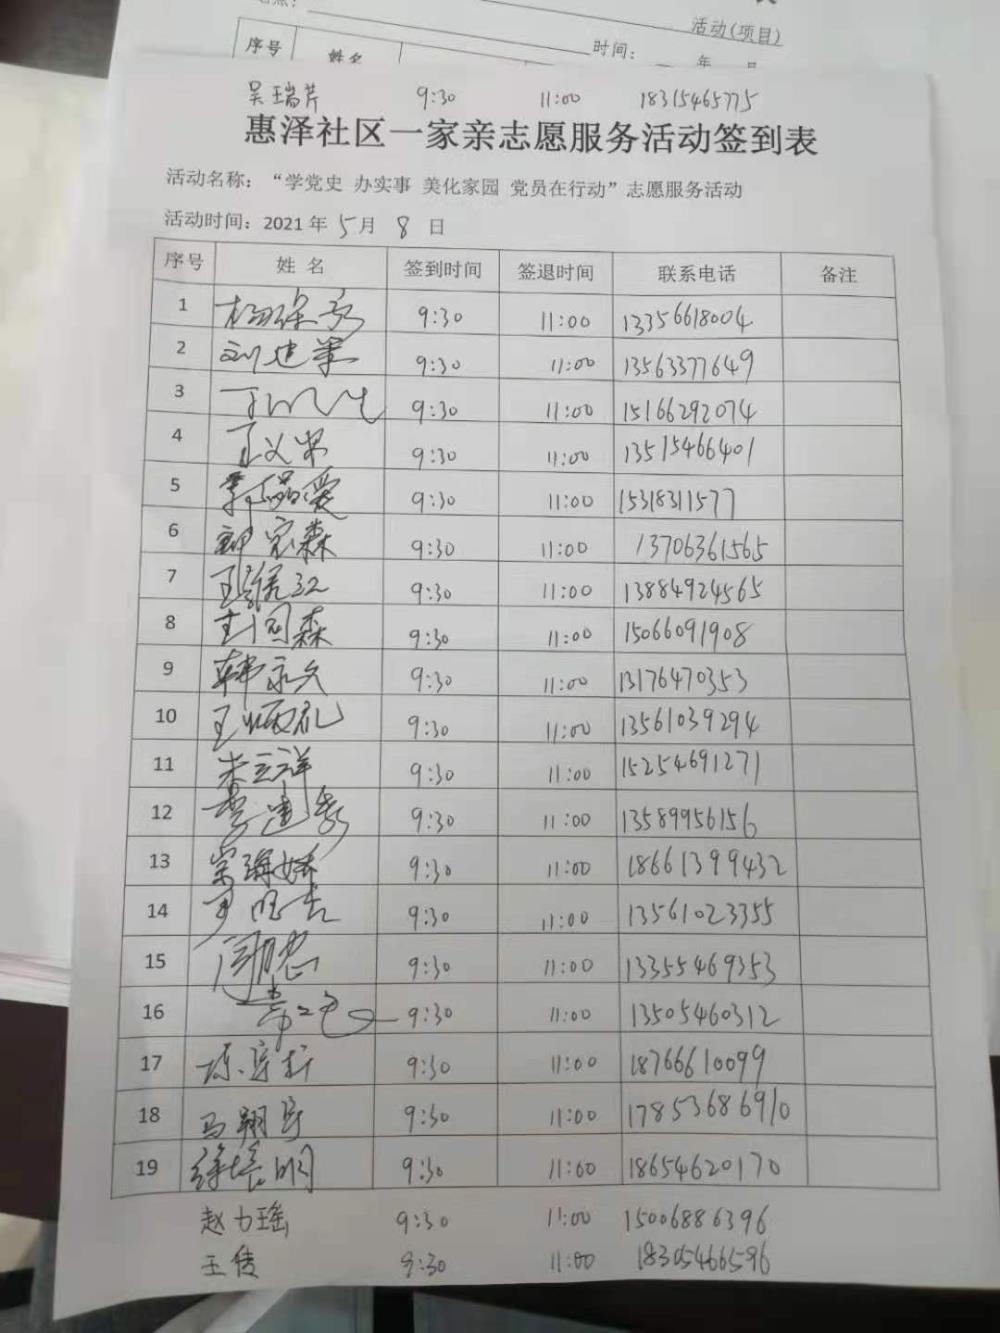 活动(项目)
时间： 年
序号 姓名
吴瑞芹 9:30 11:00 18315465775
惠泽社区一家亲志愿服务活动签到表
活动名称：“学党史 办实事 美化家园 党员在行动”志愿服务活动
活动时间：2021年5月8日
序号 姓名 签到时间 签退时间 联系电话 备注
1 9:30 11:00 13356618004
2 9:30 11:00 13563377649
3 9:30 11:00 15166292074
4 9:30 11:00 13515466401
5 9:30 11:00 15318311577
6 9:30 11:00 13706361565
7 9:30 11:00 13884924565
8 9:30 11:00 15066091908
9 韩永久 9:30 11:00 13176470353
10 9:30 11:00 13561039294
11 朱立祥 9:30 11:00 15254691271
12 9:30 11:00 13589956156
13 宗海娇 9:30 11:00 18661399432
14 9:30 11:00 13561023355
15 9:30 11:00 13355469353
16 9:30 11:00 13505460312
17 9:30 11:00 18766610099
18 马翔宇 9:30 11:00 17853686910
19 徐培明 9:30 11:00 18654620170
赵力瑶 9:30 11:00 15006886396
王倩 9:30 11:00 18305466596